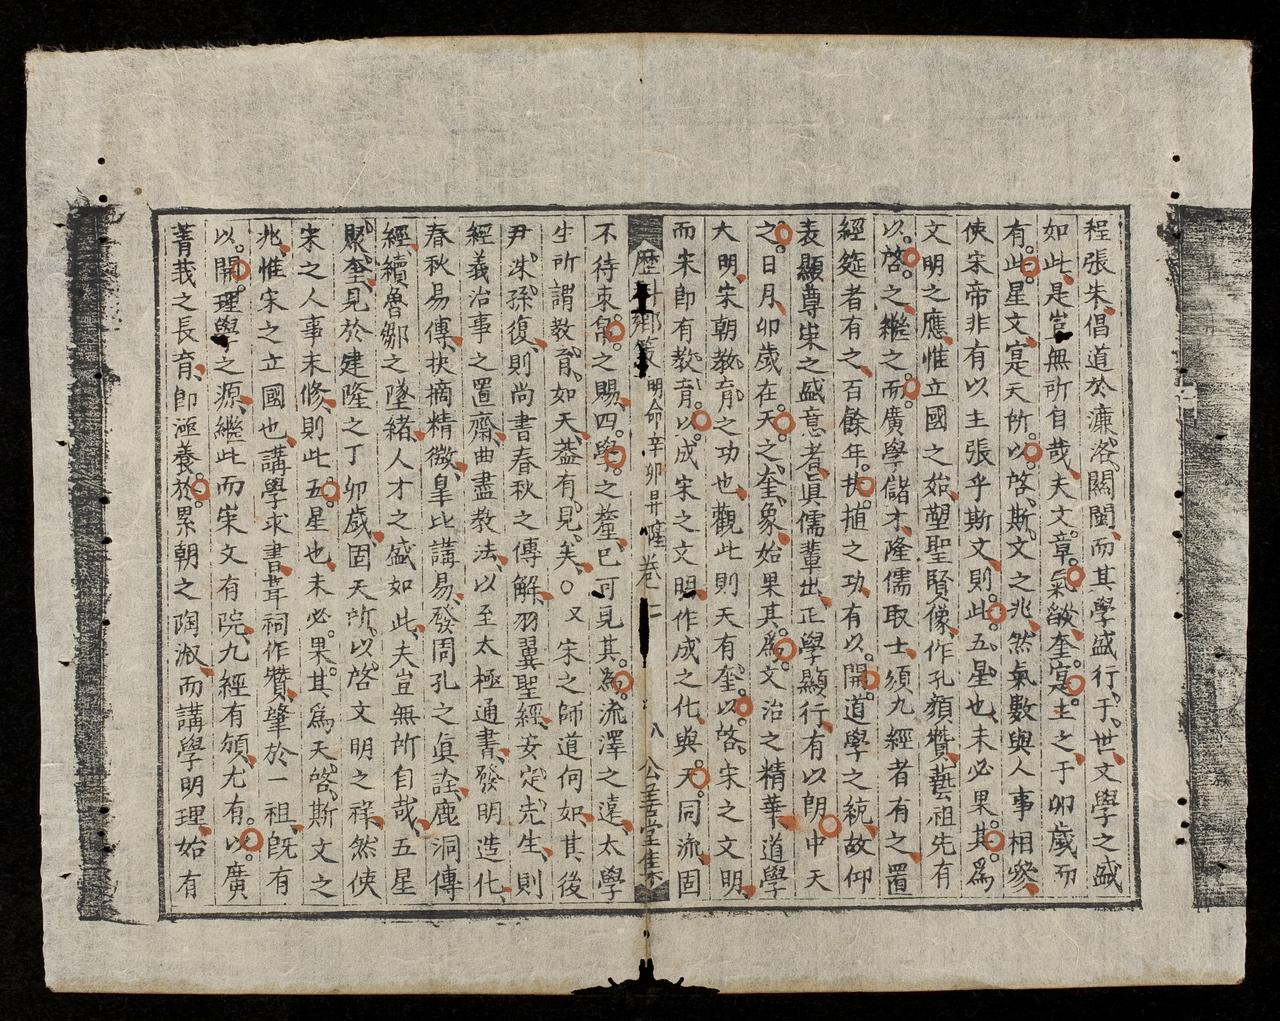 程張朱倡道於濂洛關閩而其學盛行于世文學之盛
如此是豈無所自哉夫文章氣欲奎寔主之于卯歲而
有此星文寔天所以啓斯文之兆然氣數與人事相參
使宋帝非有以主張乎斯文則此五星也未必果其為
文明之應惟立國之始塑聖賢像作孔顏贊藝祖先有
以啓之繼之而廣學儲才隆儒取士須九經者有之置
經筵者有之百餘年扶植之功有以開道學之統故仰
表顯尊宋之盛意者俱儒輩出正學顯行有以朗中天
之日月卯歲在天之奎象始果其為文治之精華道學
大明宋朝教育之功也觀此則天有奎以啓宋之文明
而宋卽有教育以成宋之文明作成之化與天同流固
歷科鄉策明命辛卯昇隆卷二 八 公善堂集
不待束帛之賜四學之釐已可見其為流澤之遠太學
生所謂教育如天蓋有見矣○又宋之師道何如其後
尹洙孫復則尚書春秋之傳解羽翼聖經安定先生則
經義治事之置齋曲盡教法以至太極通書發明造化
春秋易傳抉摘精微皋比講易發周孔之眞詮鹿洞傳
經續魯鄒之墜緒人才之盛如此夫豈無所自哉五星
聚奎見於建隆之丁卯歲固天所以啓文明之祥然使
宋之人事未修則此五星也未必果其為天啓斯文之
兆惟宋之立國也講學求書葺祠作贊肇於一祖旣有
以開理學之源繼此而崇文有院九經有頒尤有以廣
菁莪之長育卽涵養於累朝之陶淑而講學明理始有